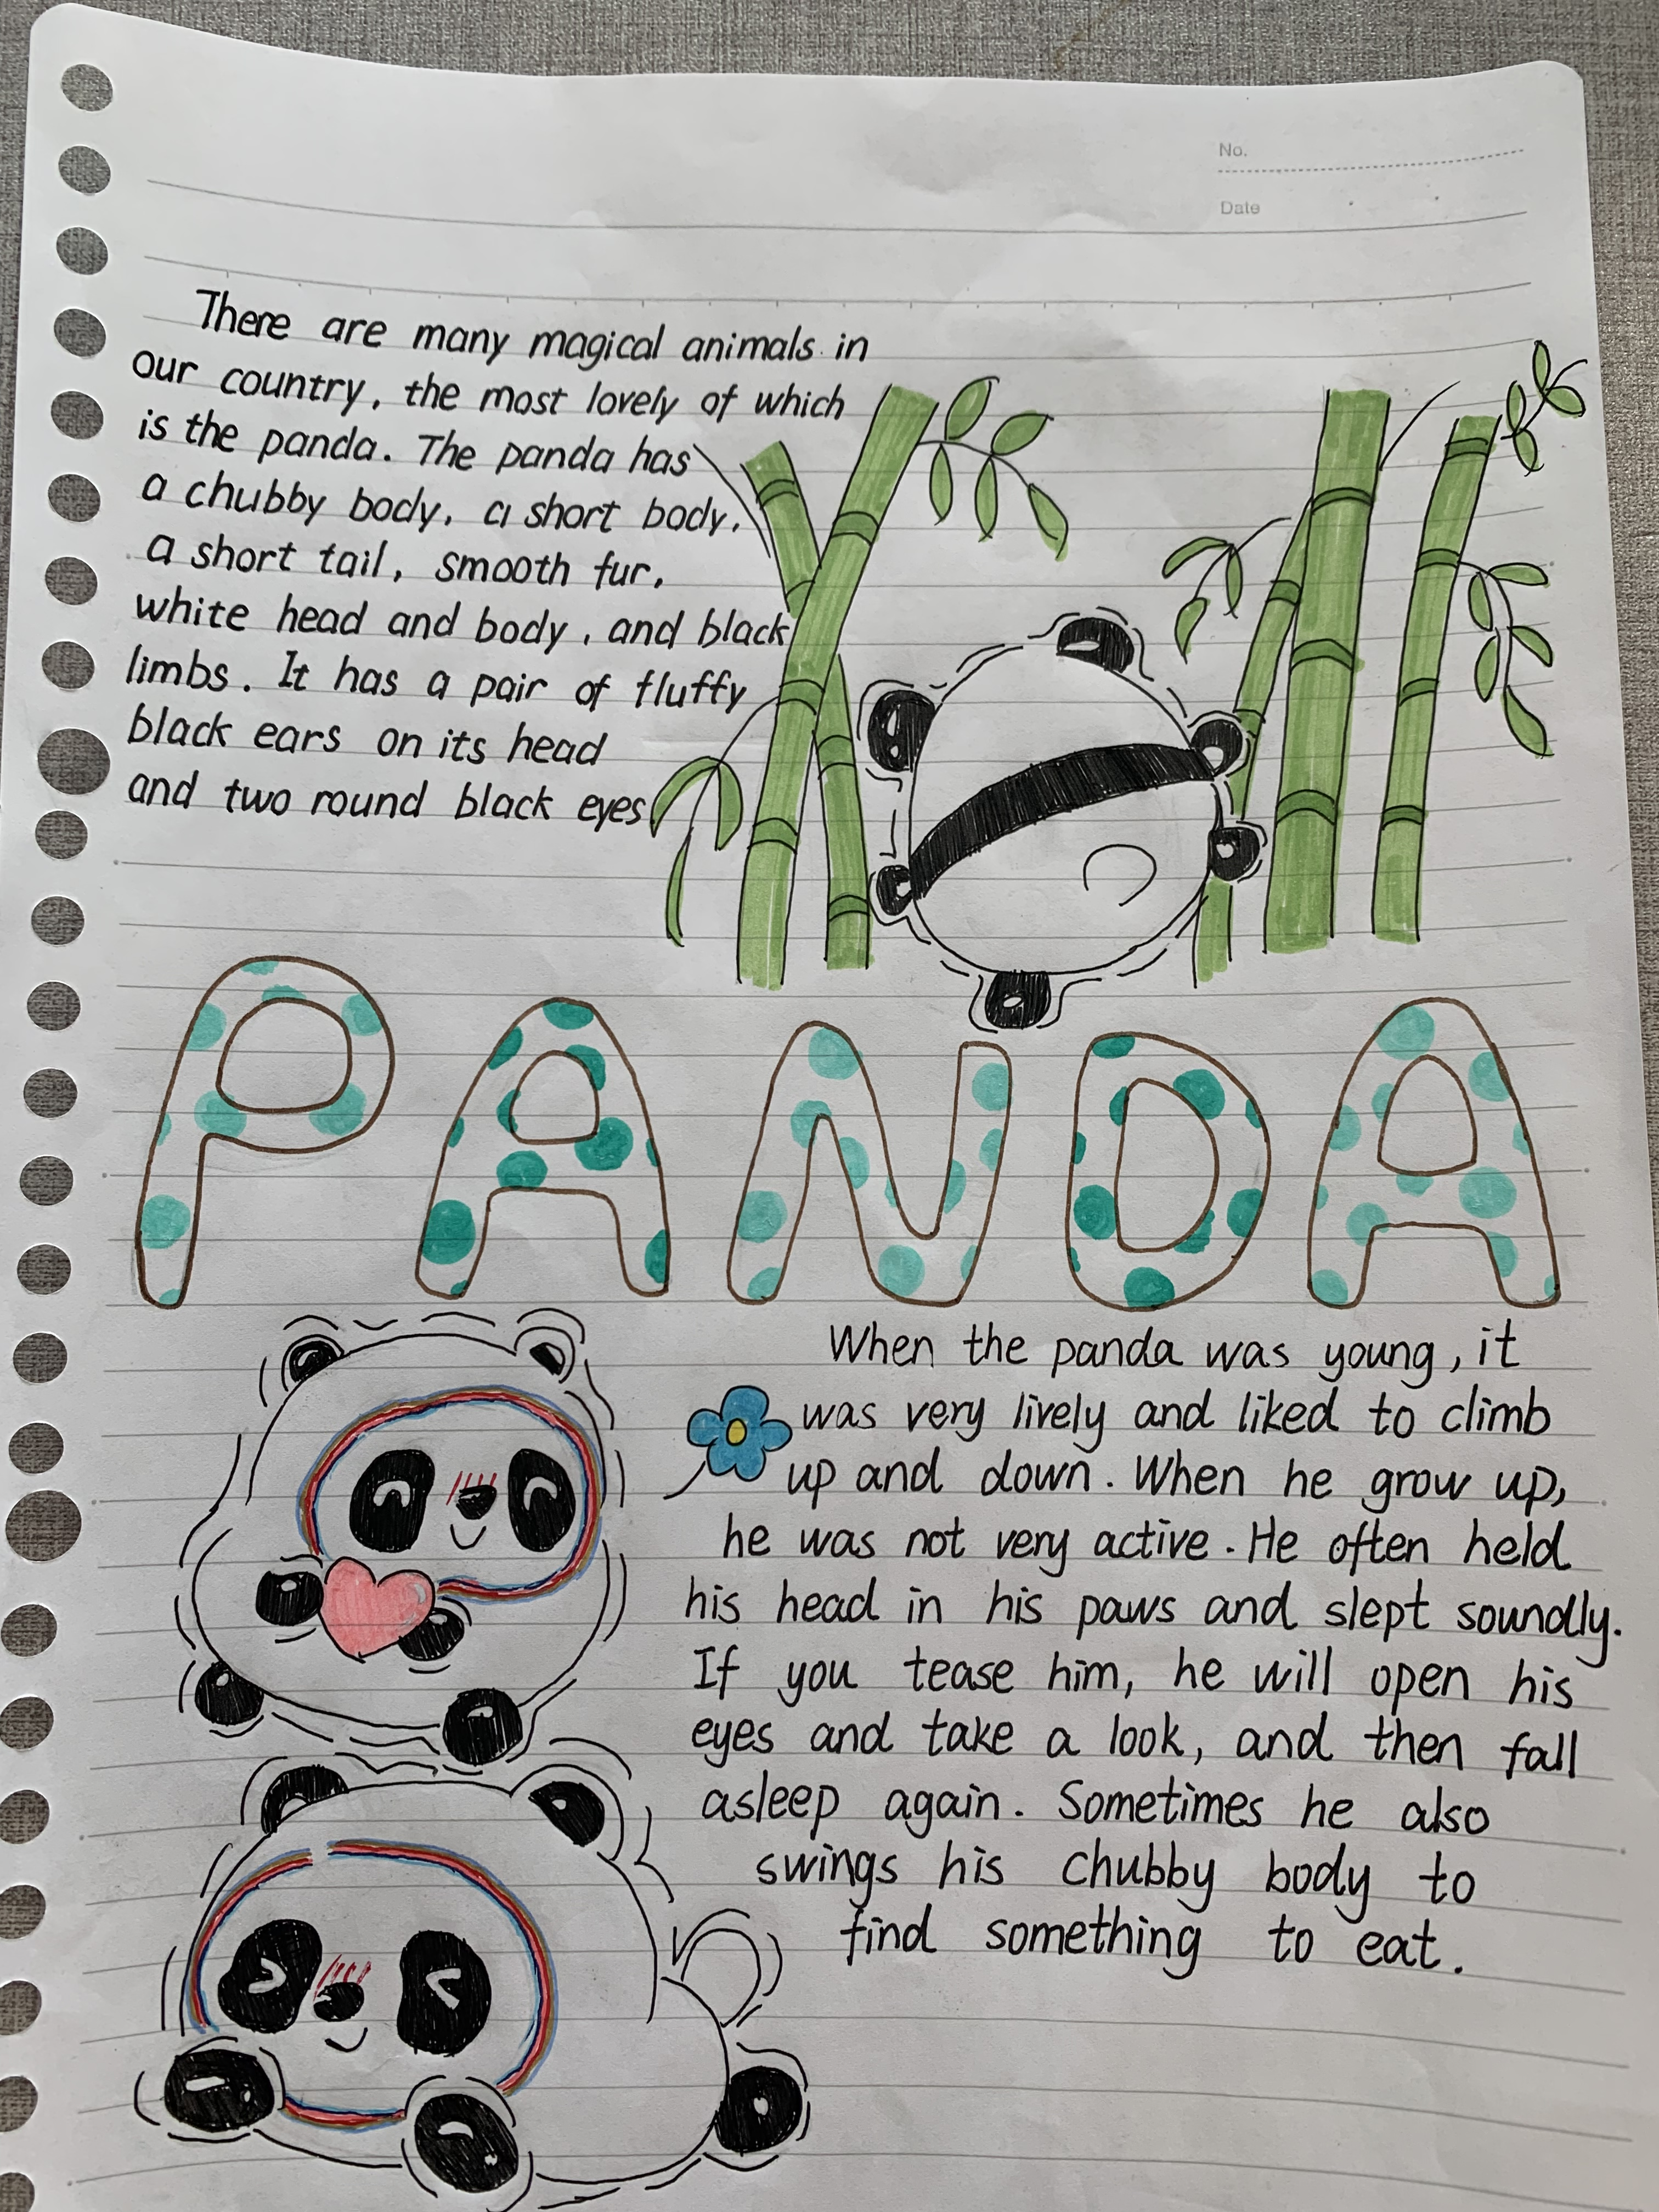 No.
Date
There are many magical animals in
our country, the most lovely of which
is the panda. The panda has
a chubby body, a short body,
a short tail, smooth fur,
white head and body, and black
limbs. It has a pair of fluffy
black ears on its head
and two round black eyes
PANDA
When the panda was young, it
was very lively and liked to climb
up and down. When he grow up,
he was not very active. He often held
his head in his paws and slept soundly.
If you tease him, he will open his
eyes and take a look, and then fall
asleep again. Sometimes he also
swings his chubby body to
find something to eat.